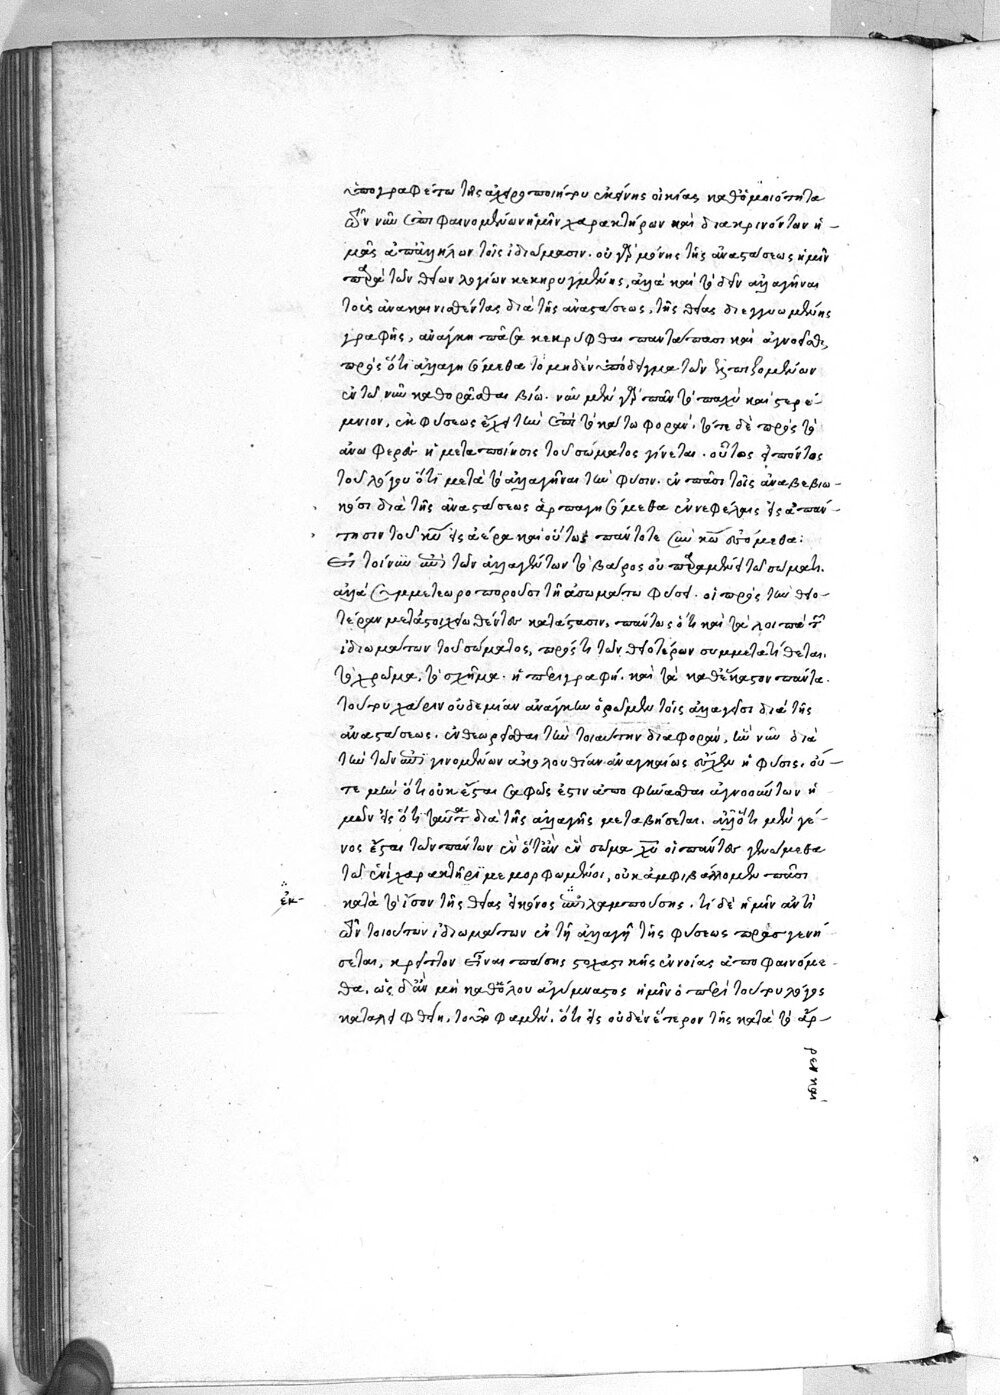 ὑπογραφέτω τῆς ἀχειροποιήτου ἐκείνης οἰκίας καθ' ὁμοιότητα
τῶν νῦν ἐπιφαινομένων ἡμῖν χαρακτήρων καὶ διακρινόντων ἡ-
μᾶς ἀπ' ἀλλήλων τοῖς ἰδιώμασιν. οὐ γὰρ μόνης τῆς ἀναστάσεως ἡμῖν
παρὰ τῶν θείων λογίων κεκηρυγμένης, ἀλλὰ καὶ τὸ δεῖν ἀλλαγῆναι
τοὺς ἀνακαινισθέντας διὰ τῆς ἀναστάσεως, τῆς θείας διεγγυωμένης
γραφῆς, ἀνάγκη πᾶσα κεκρύφθαι παντάπασι καὶ ἀγνοεῖσθαι,
πρὸς ὅτι ἀλλαγησόμεθα τῷ μηδὲν ὑπόδειγμα τῶν ἐλπιζομένων
ἐν τῷ νῦν καθορᾶσθαι βίῳ. νῦν μὲν γὰρ πᾶν τὸ παχὺ καὶ στερέ-
μνιον, ἐκ φύσεως ἔχει τὴν ἐπὶ τὸ κάτω φοράν. τότε δὲ πρὸς τὸ
ἀνωφερὲς ἡ μεταποίησις τοῦ σώματος γίνεται. οὕτως εἰπόντος
τοῦ λόγου ὅτι μετὰ τὸ ἀλλαγῆναι τὴν φύσιν. ἐν πᾶσι τοῖς ἀναβεβιω-
κόσι διὰ τῆς ἀναστάσεως ἁρπαγησόμεθα ἐν νεφέλαις εἰς ἀπάν-
τησιν τοῦ κυ εἰς ἀέρα καὶ οὕτως πάντοτε σὺν κω ἐσόμεθα:
Εἰ τοίνυν ἐπὶ τῶν ἀλλαγέντων τὸ βάρος οὐ παραμένει τῷ σώματι.
ἀλλὰ συμμετεωροποροῦσι τῇ ἀσωμάτῳ φύσει. οἱ πρὸς τὴν θειο-
τέραν μεταστοιχειωθέντες κατάστασιν, πάντως ὅτι καὶ τὰ λοιπὰ τῶν
ἰδιωμάτων τοῦ σώματος, πρός τι τῶν θειοτέρων συμμετατίθεται.
τὸ χρῶμα, τὸ σχῆμα. ἡ περιγραφή. καὶ τὰ καθ' ἕκαστον πάντα.
τούτου χάριν οὐδεμίαν ἀνάγκην ὁρῶμεν τοῖς ἀλλαγεῖσι διὰ τῆς
ἀναστάσεως. ἐνθεωρεῖσθαι τὴν τοιαύτην διαφοράν, ἣν νῦν διὰ
τὴν τῶν ἐπιγινομένων ἀκολουθίαν ἀναγκαίως ἔσχεν ἡ φύσις. οὔ-
τε μὴν ὅτι οὐκ ἔσται σαφῶς ἐστιν ἀποφήνασθαι ἀγνοούντων ἡ-
μῶν εἰς ὅτι ταῦτα διὰ τῆς ἀλλαγῆς μεταβήσεται. ἀλλ' ὅτι μὲν γέ-
νος ἔσται τῶν πάντων ἓν ὅταν ἓν σῶμα χυ οἱ πάντες γενώμεθα
τῷ ἑνὶ χαρακτῆρι μεμορφωμένοι, οὐκ ἀμφιβάλλομεν πᾶσι
κατὰ τὸ ἴσον τῆς θείας εἰκόνος ἐπιλαμπούσης. τί δὲ ἡμῖν ἀντὶ
ἐκ-
τῶν τοιούτων ἰδιωμάτων ἐν τῇ ἀλλαγῇ τῆς φύσεως προσγενή-
σεται, κρεῖττον εἶναι πάσης στοχαστικῆς ἐννοίας ἀποφαινόμε-
θα. ὡς δ' ἂν μὴ καθόλου ἀγύμναστος ἡμῖν ὁ περὶ τούτου λόγος
καταλειφθείη, τοῦτό φαμεν. ὅτι εἰς οὐδὲν ἕτερον τῆς κατὰ τὸ ἄρ-
ρεν καὶ